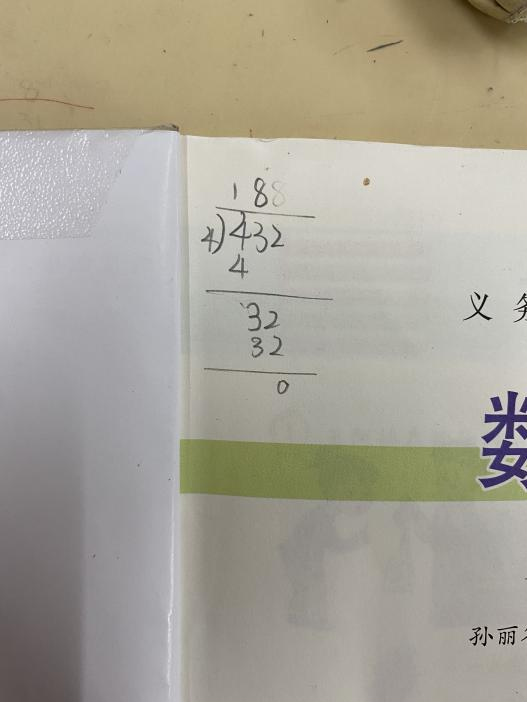 188
4)432
4
32
32
0
义务
数
孙丽